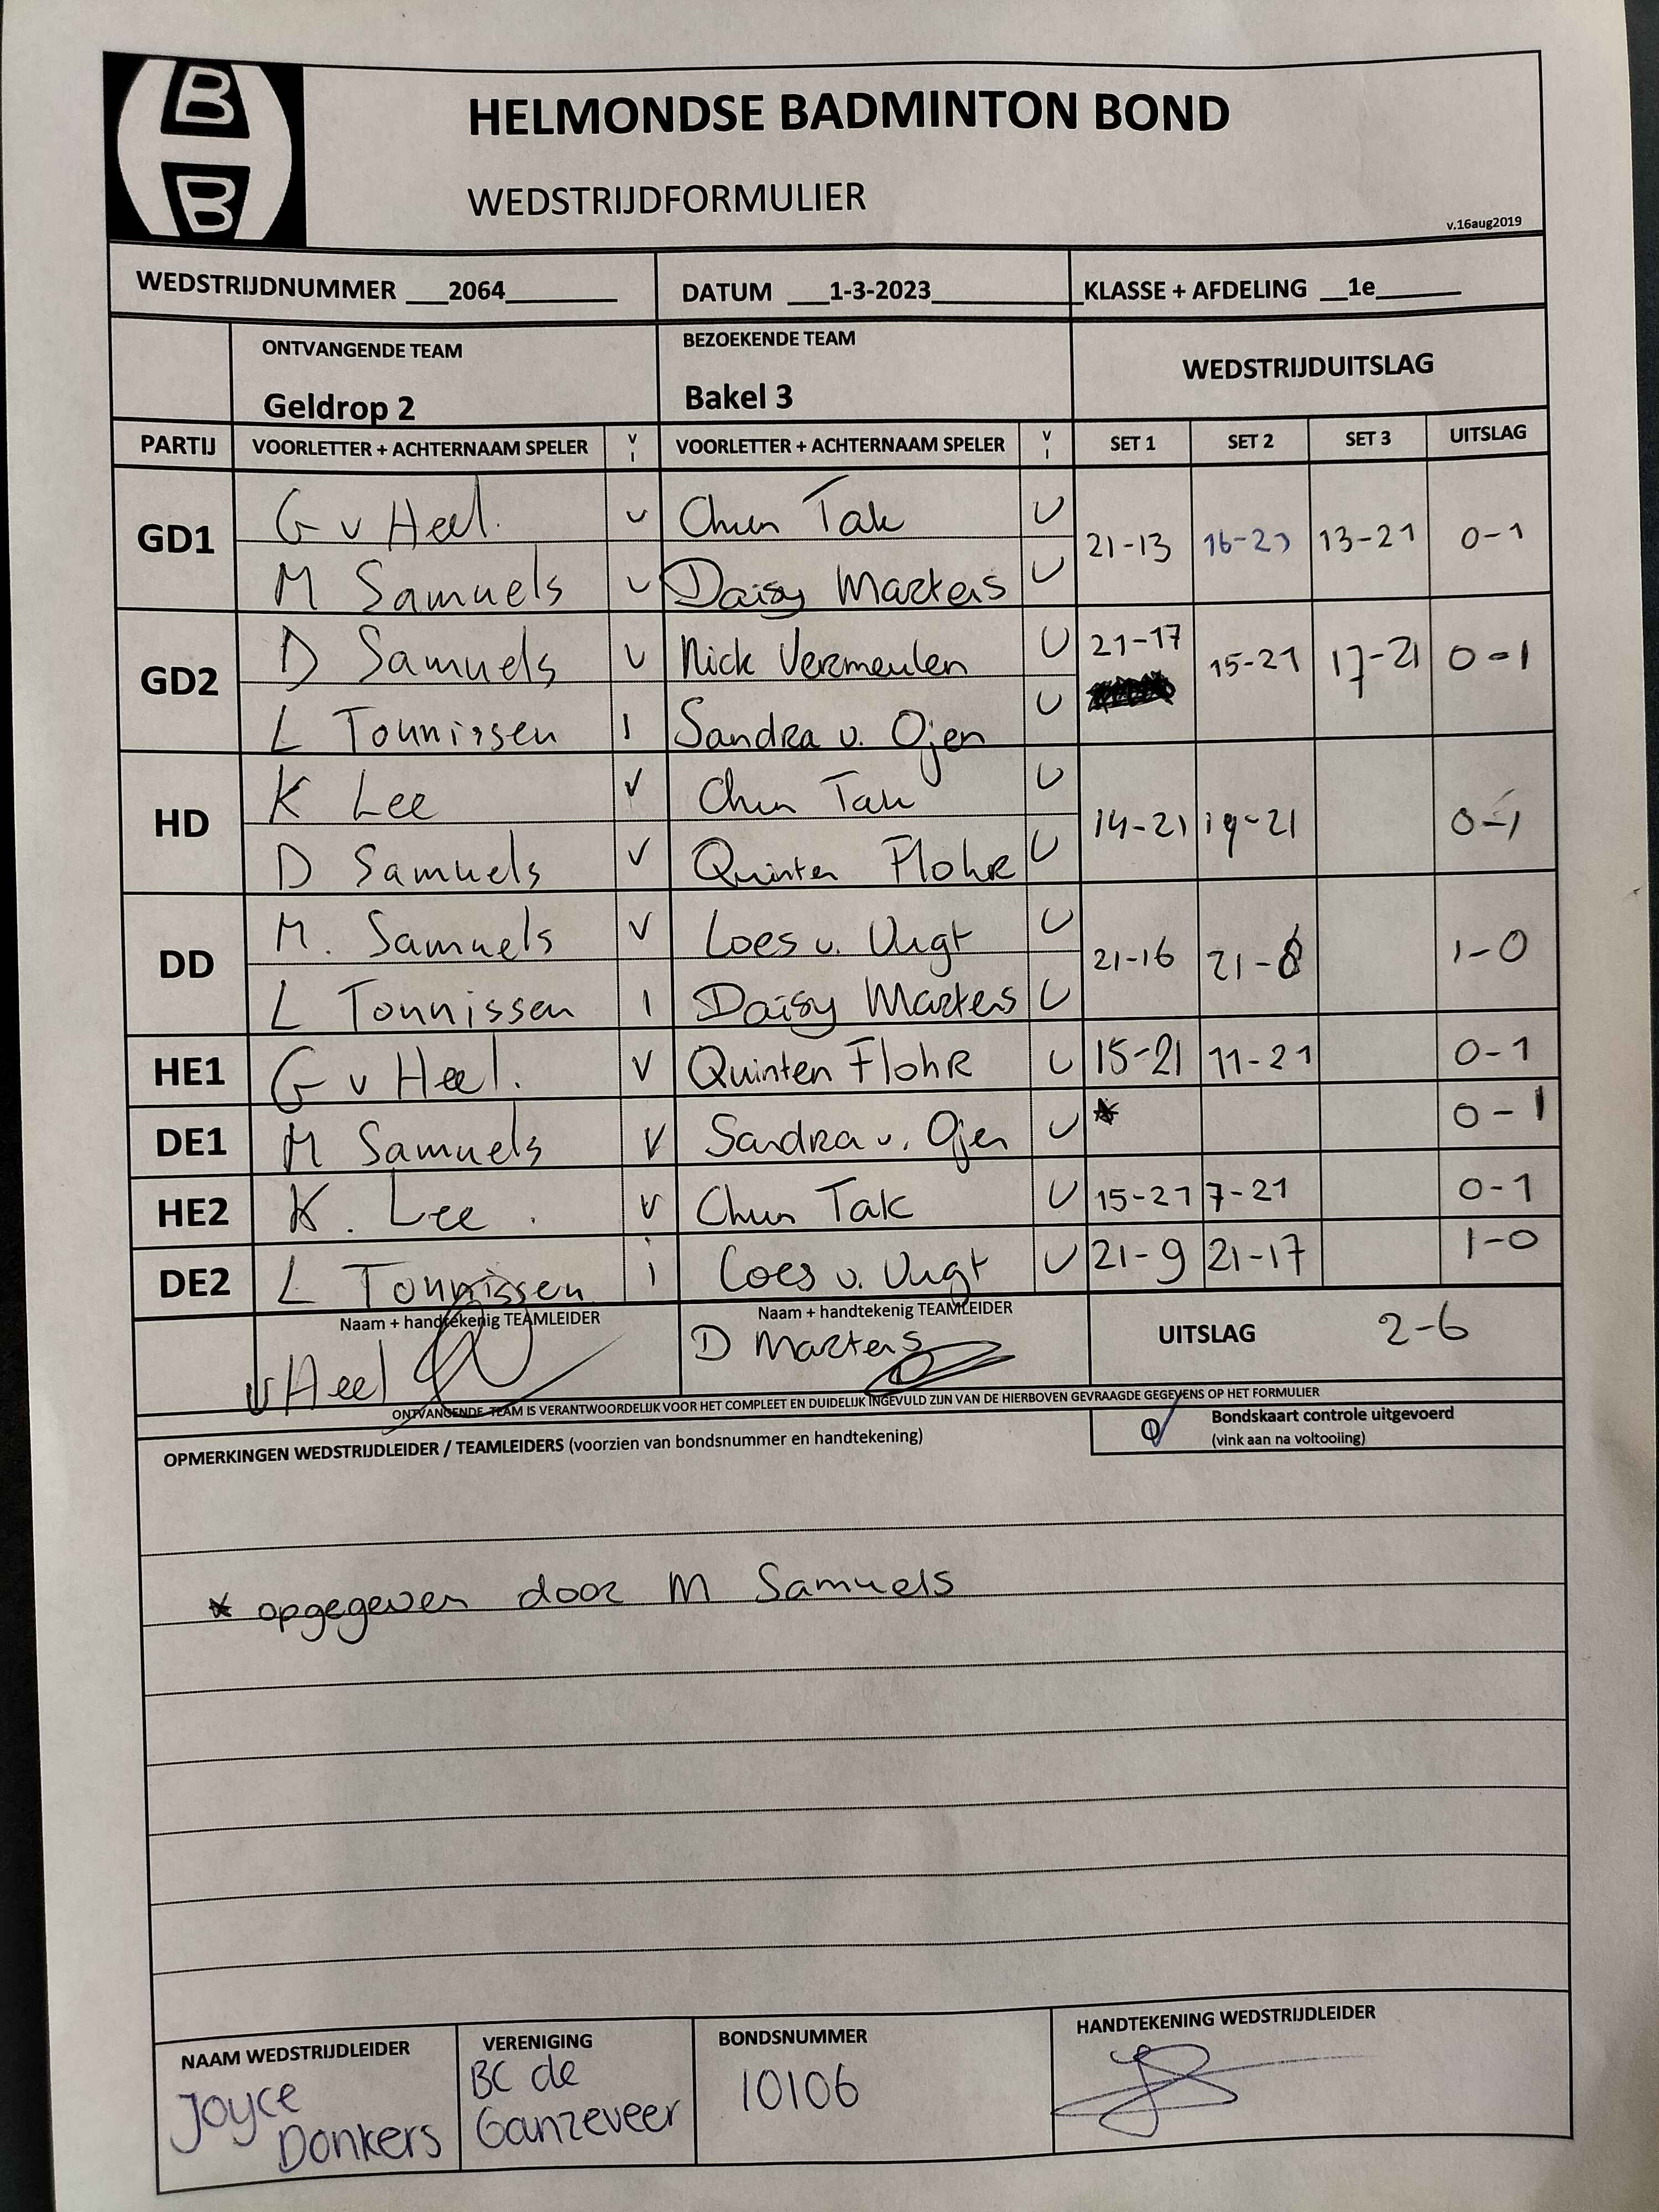 B
B
HELMONDSE BADMINTON BOND
WEDSTRIJDFORMULIER
v.16aug2019
WEDSTRIJDNUMMER 2064 DATUM 1-3-2023 KLASSE + AFDELING 1e
ONTVANGENDE TEAM BEZOEKENDE TEAM WEDSTRIJDUITSLAG
Geldrop 2 Bakel 3
PARTIJ VOORLETTER + ACHTERNAAM SPELER V I VOORLETTER + ACHTERNAAM SPELER V I SET 1 SET 2 SET 3 UITSLAG
GD1 G v Heel. v Chun Tak v 21-13 16-21 13-21 0-1
M Samuels v Daisy Martens v
GD2 D Samuels v Nick Vermeulen v 21-17 15-21 17-21 0-1
L Tonnissen I Sandra v. Ojen v
HD K Lee v Chun Tak v 14-21 19-21 0-1
D Samuels v Quinten Flohr v
DD M. Samuels v Loes v. Vugt v 21-16 21-8 1-0
L Tonnissen I Daisy Martens v
HE1 G v Heel. v Quinten Flohr v 15-21 11-21 0-1
DE1 M Samuels v Sandra v. Ojen v * 0-1
HE2 K. Lee. v Chun Tak v 15-21 7-21 0-1
DE2 L Tonnissen i Loes v. Vugt v 21-9 21-17 1-0
Naam + handtekenig TEAMLEIDER Naam + handtekenig TEAMLEIDER UITSLAG 2-6
v Heel D Martens
ONTVANGENDE TEAM IS VERANTWOORDELIJK VOOR HET COMPLEET EN DUIDELIJK INGEVULD ZIJN VAN DE HIERBOVEN GEVRAAGDE GEGEVENS OP HET FORMULIER
OPMERKINGEN WEDSTRIJDLEIDER / TEAMLEIDERS (voorzien van bondsnummer en handtekening)
Bondskaart controle uitgevoerd
(vink aan na voltooiing)
* opgegeven door M Samuels
NAAM WEDSTRIJDLEIDER VERENIGING BONDSNUMMER HANDTEKENING WEDSTRIJDLEIDER
Joyce BC de 10106
Donkers Ganzeveer